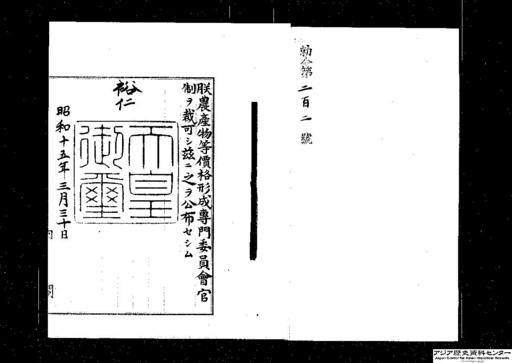 勅令第二百二號
朕農產物等價格形成專門委員會官
制ヲ裁可シ茲ニ之ヲ公布セシム
裕仁
天皇
御璽
昭和十五年三月三十日
内閣
アジア歴史資料センター
Japan Center for Asian Historical Records